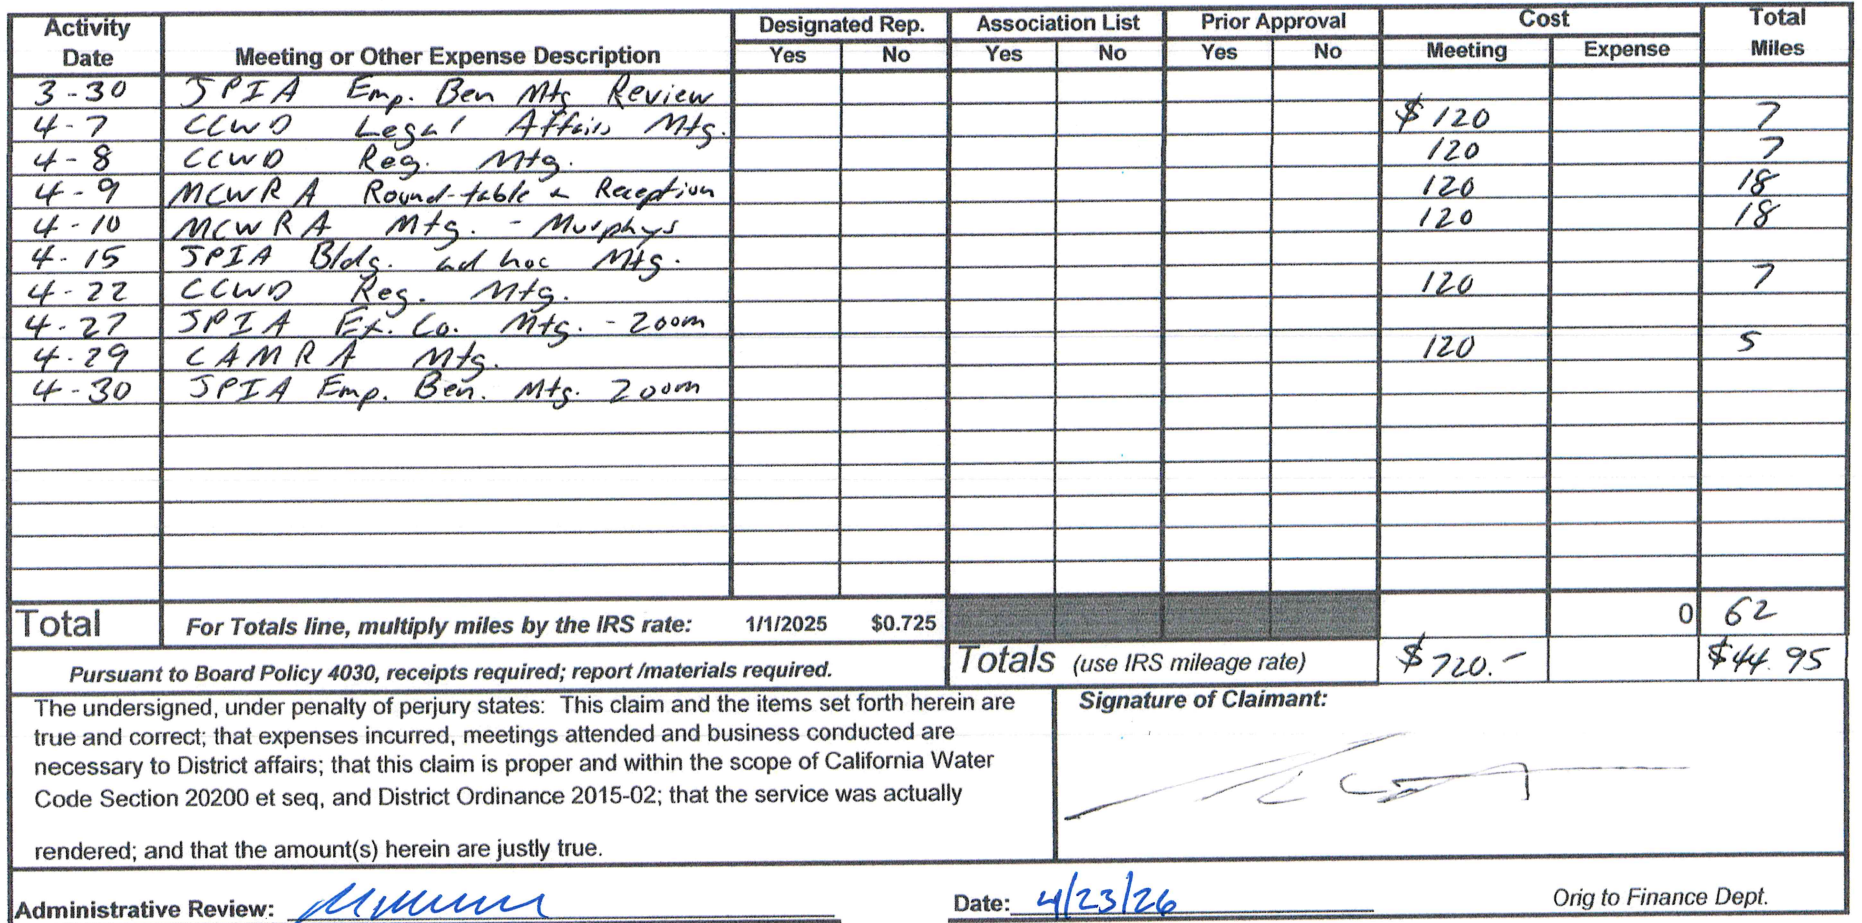 Activity Date Meeting or Other Expense Description Designated Rep. Yes No Association List Yes No Prior Approval Yes No Cost Meeting Expense Total Miles
3-30 JPIA Emp. Ben Mtg Review
4-7 CCWD Legal Affairs Mtg. $120 7
4-8 CCWD Reg. Mtg. 120 7
4-9 MCWRA Round-table & Reception 120 18
4-10 MCWRA Mtg. - Murphys 120 18
4-15 JPIA Bldg. ad hoc Mtg.
4-22 CCWD Reg. Mtg. 120 7
4-27 JPIA Ex. Co. Mtg. - Zoom
4-29 CAMRA Mtg. 120 5
4-30 JPIA Emp. Ben. Mtg. Zoom
Total For Totals line, multiply miles by the IRS rate: 1/1/2025 $0.725 0 62
Pursuant to Board Policy 4030, receipts required; report /materials required. Totals (use IRS mileage rate) $720.- $44.95
The undersigned, under penalty of perjury states: This claim and the items set forth herein are
true and correct; that expenses incurred, meetings attended and business conducted are
necessary to District affairs; that this claim is proper and within the scope of California Water
Code Section 20200 et seq, and District Ordinance 2015-02; that the service was actually
rendered; and that the amount(s) herein are justly true.
Signature of Claimant:
Administrative Review: Date: 4/23/26 Orig to Finance Dept.